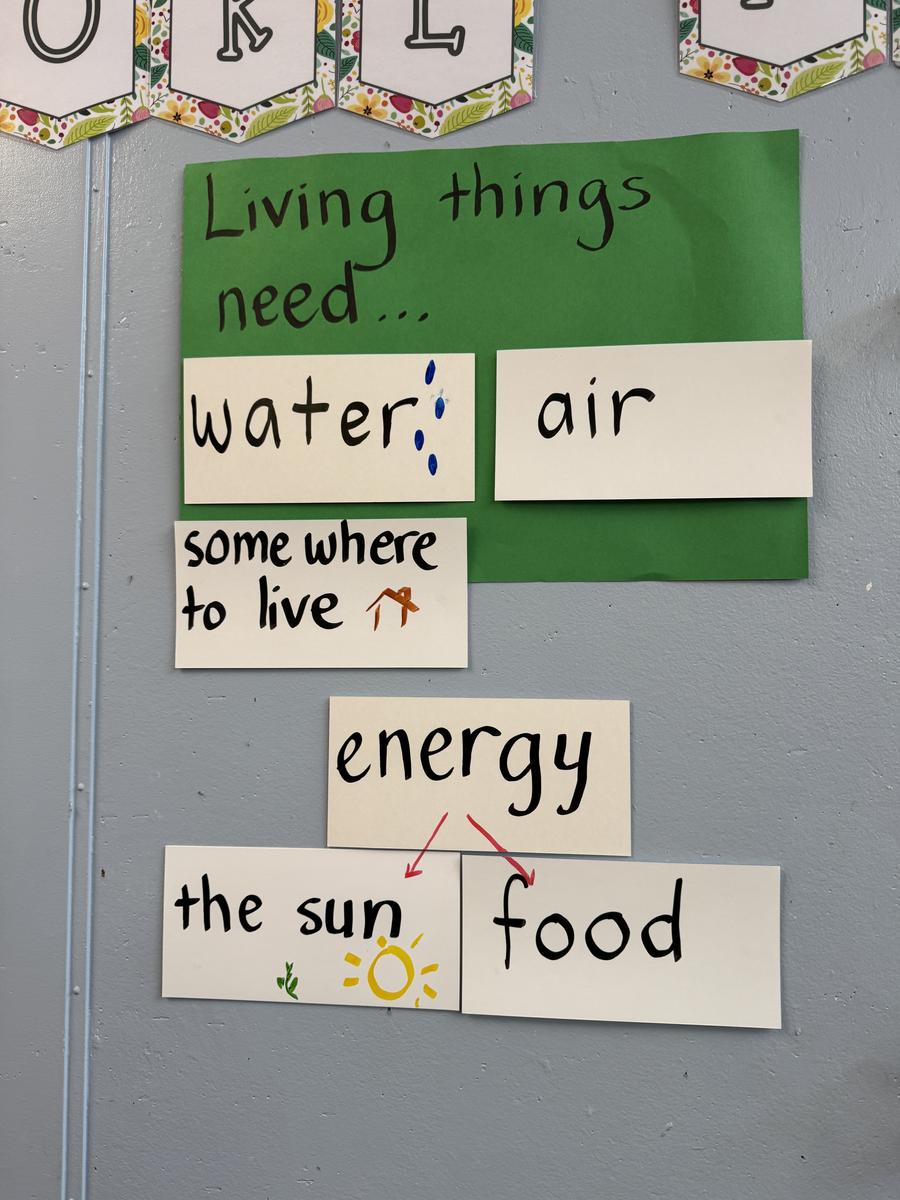 O R L
Living things
need...
water
air
some where
to live
energy
the sun
food